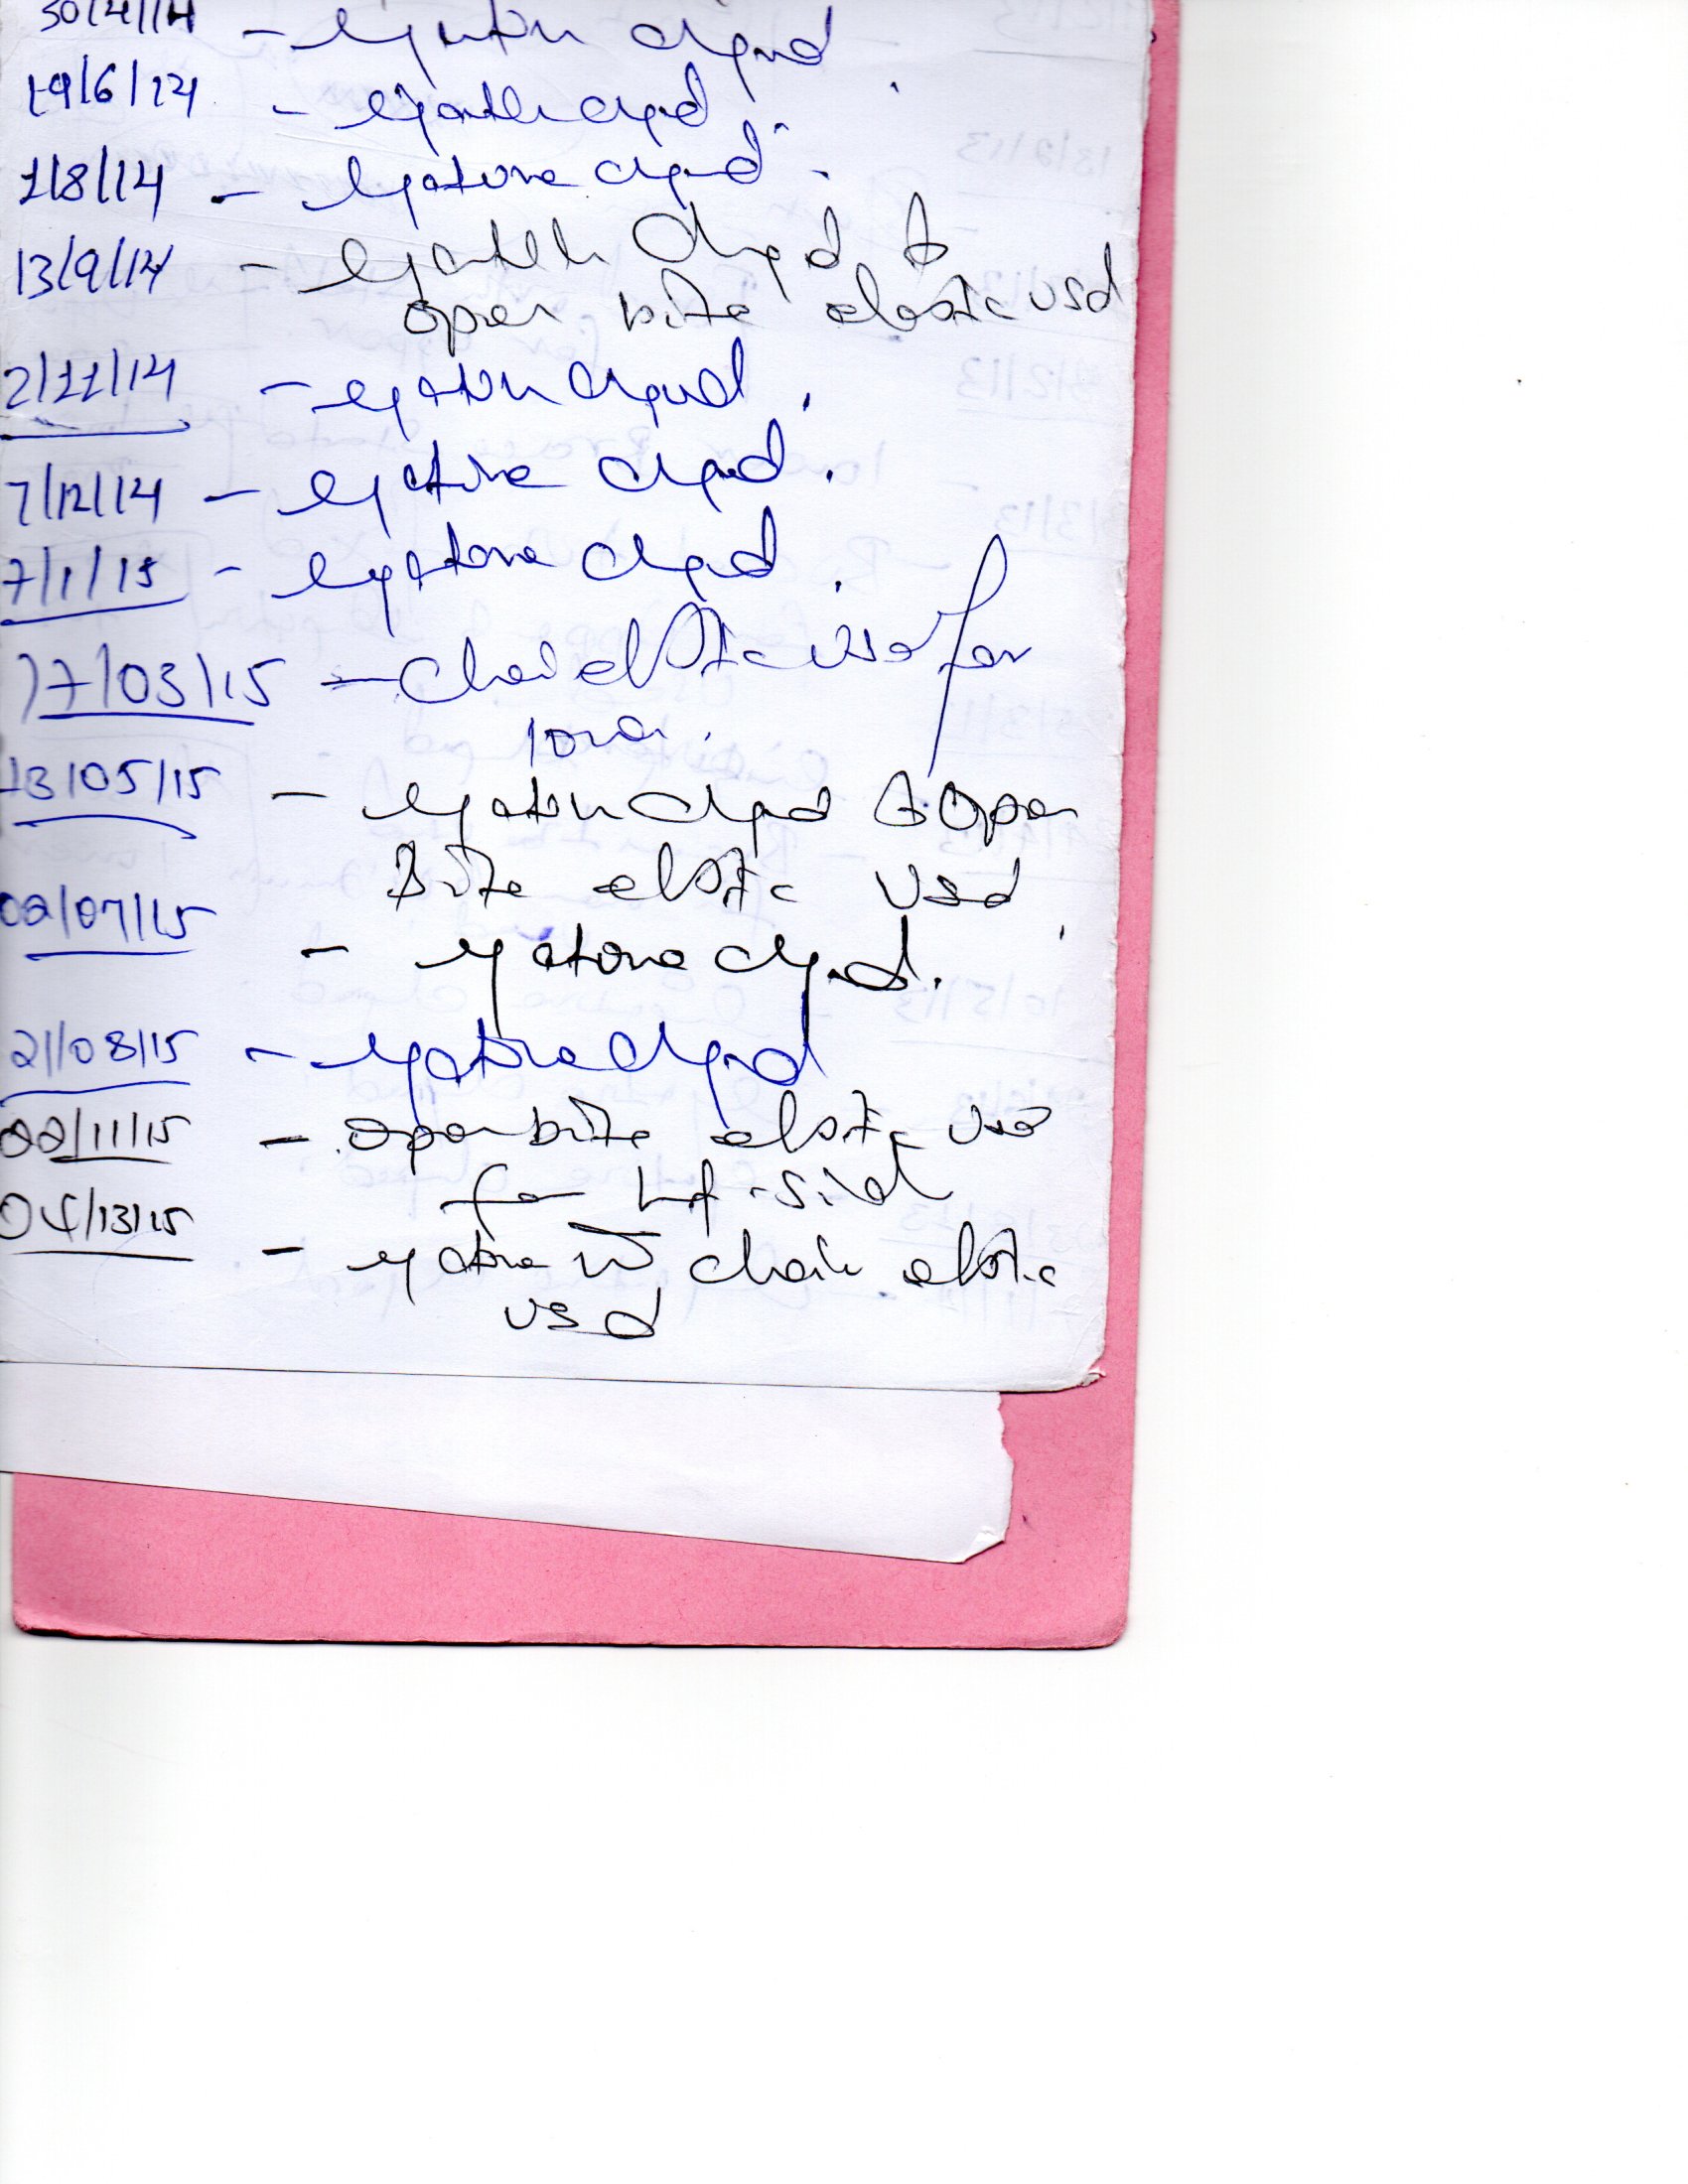 30/4/14 - ligature changed
19/6/14 - ligature changed.
1/8/14 - ligature changed.
13/9/14 - ligature changed &
open bite elastic used
2/11/14 - ligature changed.
7/12/14 - ligature changed.
7/1/15 - ligature changed.
17/03/15 - Chain elastic use for
lower.
13/05/15 - ligature changed & open
Bite elastic used
02/07/15 - ligature changed.
21/08/15 - ligature changed
02/11/15 - open bite elastic use
for left side
04/13/15 - ligature chain elastic
used